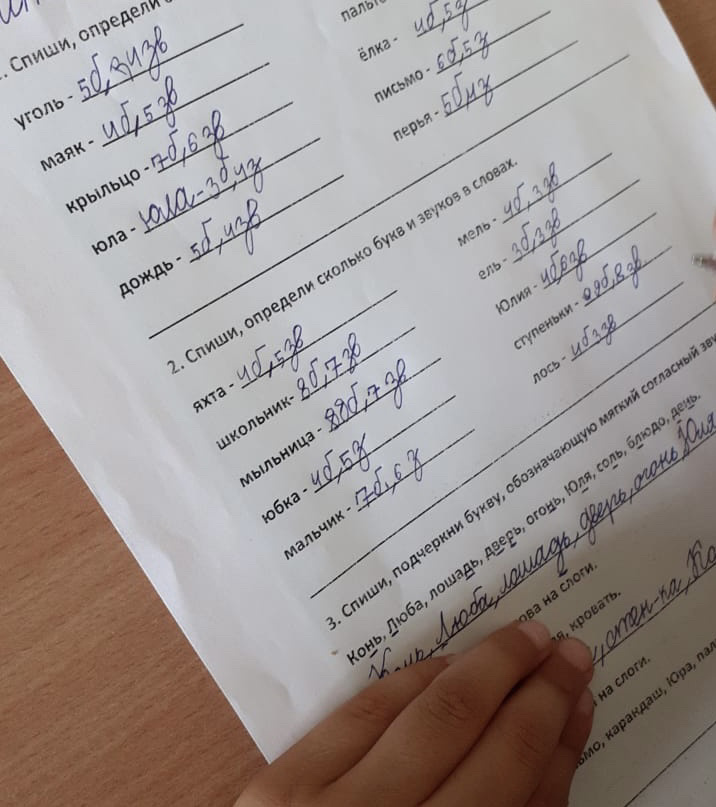 . Спиши, определи
уголь - 5б, 4 зв
маяк - 4б, 5 зв
крыльцо - 7б, 6 зв
юла - юла - 3б, 4 з
дождь - 5б, 4 зв
ёлка - 4б, 5 з
письмо - 6б, 5 з
перья - 5б 4 з
2. Спиши, определи сколько букв и звуков в словах.
яхта - 4б, 5 зв
школьник- 8б, 7 зв
мыльница - 8б, 7 зв
юбка - 4б, 5 з
мальчик - 7б, 6 з
мель - 4б, 3 зв
ель - 3б, 3 зв
Юлия - 4б 6 зв
ступеньки - 9б, 8 зв.
лось - 4б 3 зв
3. Спиши, подчеркни букву, обозначающую мягкий согласный зву
Конь, Люба, лошадь, дверь, огонь, Юля, соль, блюдо, день.
Конь, Люба, лошадь, дверь, огонь, Юля
на слоги.
кровать.
стен-ка,
на слоги.
карандаш, Юра,